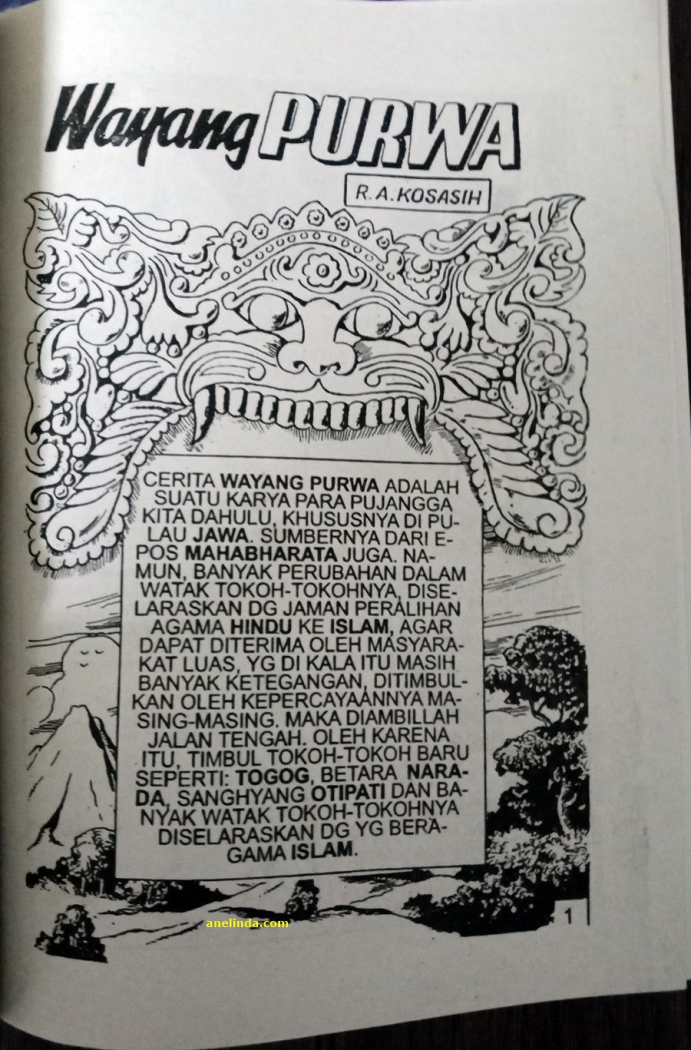 Wayang PURWA
R.A.KOSASIH
CERITA WAYANG PURWA ADALAH
SUATU KARYA PARA PUJANGGA
KITA DAHULU, KHUSUSNYA DI PU-
LAU JAWA. SUMBERNYA DARI E-
POS MAHABHARATA JUGA. NA-
MUN, BANYAK PERUBAHAN DALAM
WATAK TOKOH-TOKOHNYA, DISE-
LARASKAN DG JAMAN PERALIHAN
AGAMA HINDU KE ISLAM, AGAR
DAPAT DITERIMA OLEH MASYARA-
KAT LUAS, YG DI KALA ITU MASIH
BANYAK KETEGANGAN, DITIMBUL-
KAN OLEH KEPERCAYAANNYA MA-
SING-MASING. MAKA DIAMBILLAH
JALAN TENGAH. OLEH KARENA
ITU, TIMBUL TOKOH-TOKOH BARU
SEPERTI: TOGOG, BETARA NARA-
DA, SANGHYANG OTIPATI DAN BA-
NYAK WATAK TOKOH-TOKOHNYA
DISELARASKAN DG YG BERA-
GAMA ISLAM.
anelinda.com
1